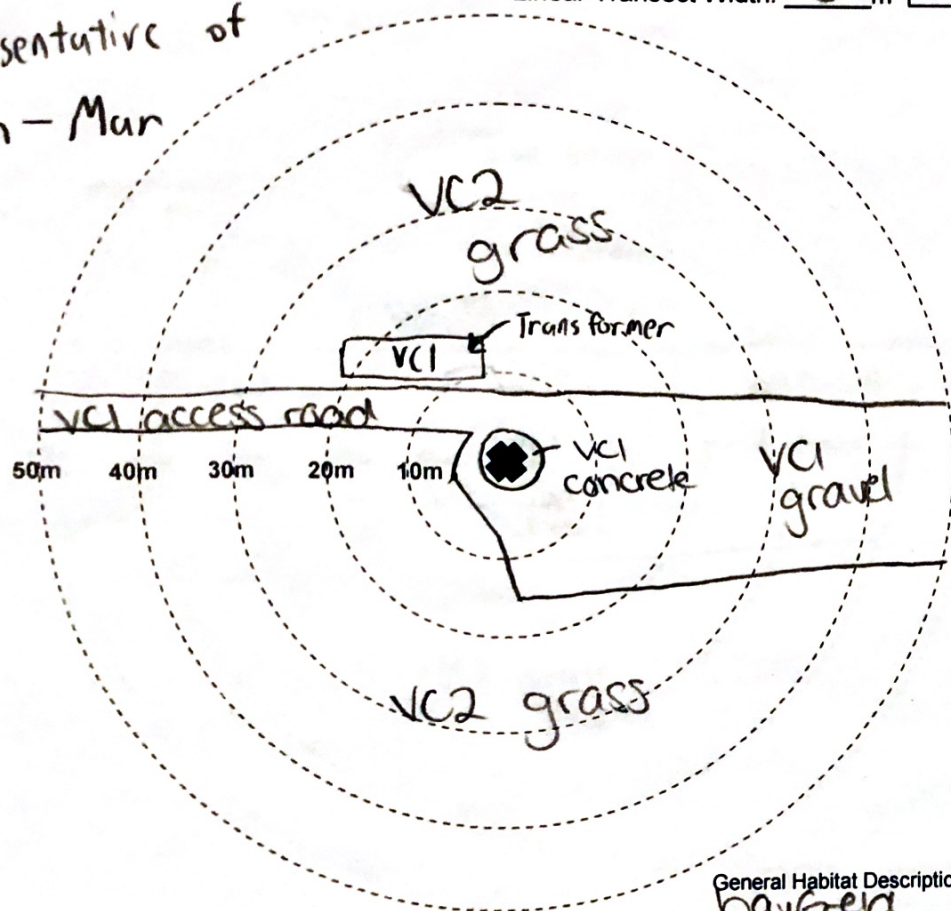 Linear Transect Width: m
sentative of
n - Mar
VC2
grass
Transformer
VC1
VC1 access road
50m 40m 30m 20m 10m
VC1
concrete
VC1
gravel
VC2 grass
General Habitat Descriptio
hayfield